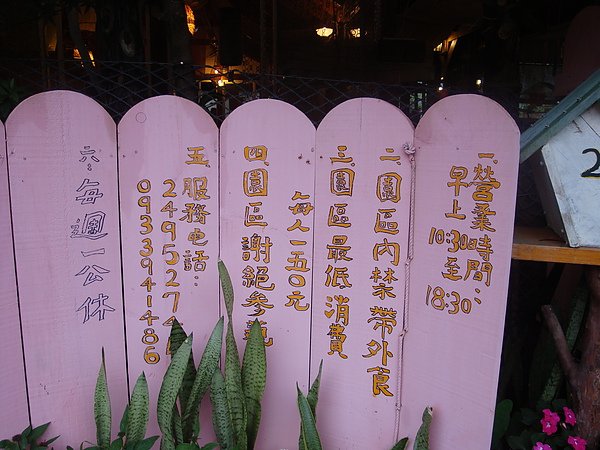 一.營業時間:
早上10:30至18:30
二.園區內禁帶外食
三.園區最低消費
每人一五〇元
四.園區謝絕參觀
五.服務電話:
2495274
0933941486
六.每週一公休
2